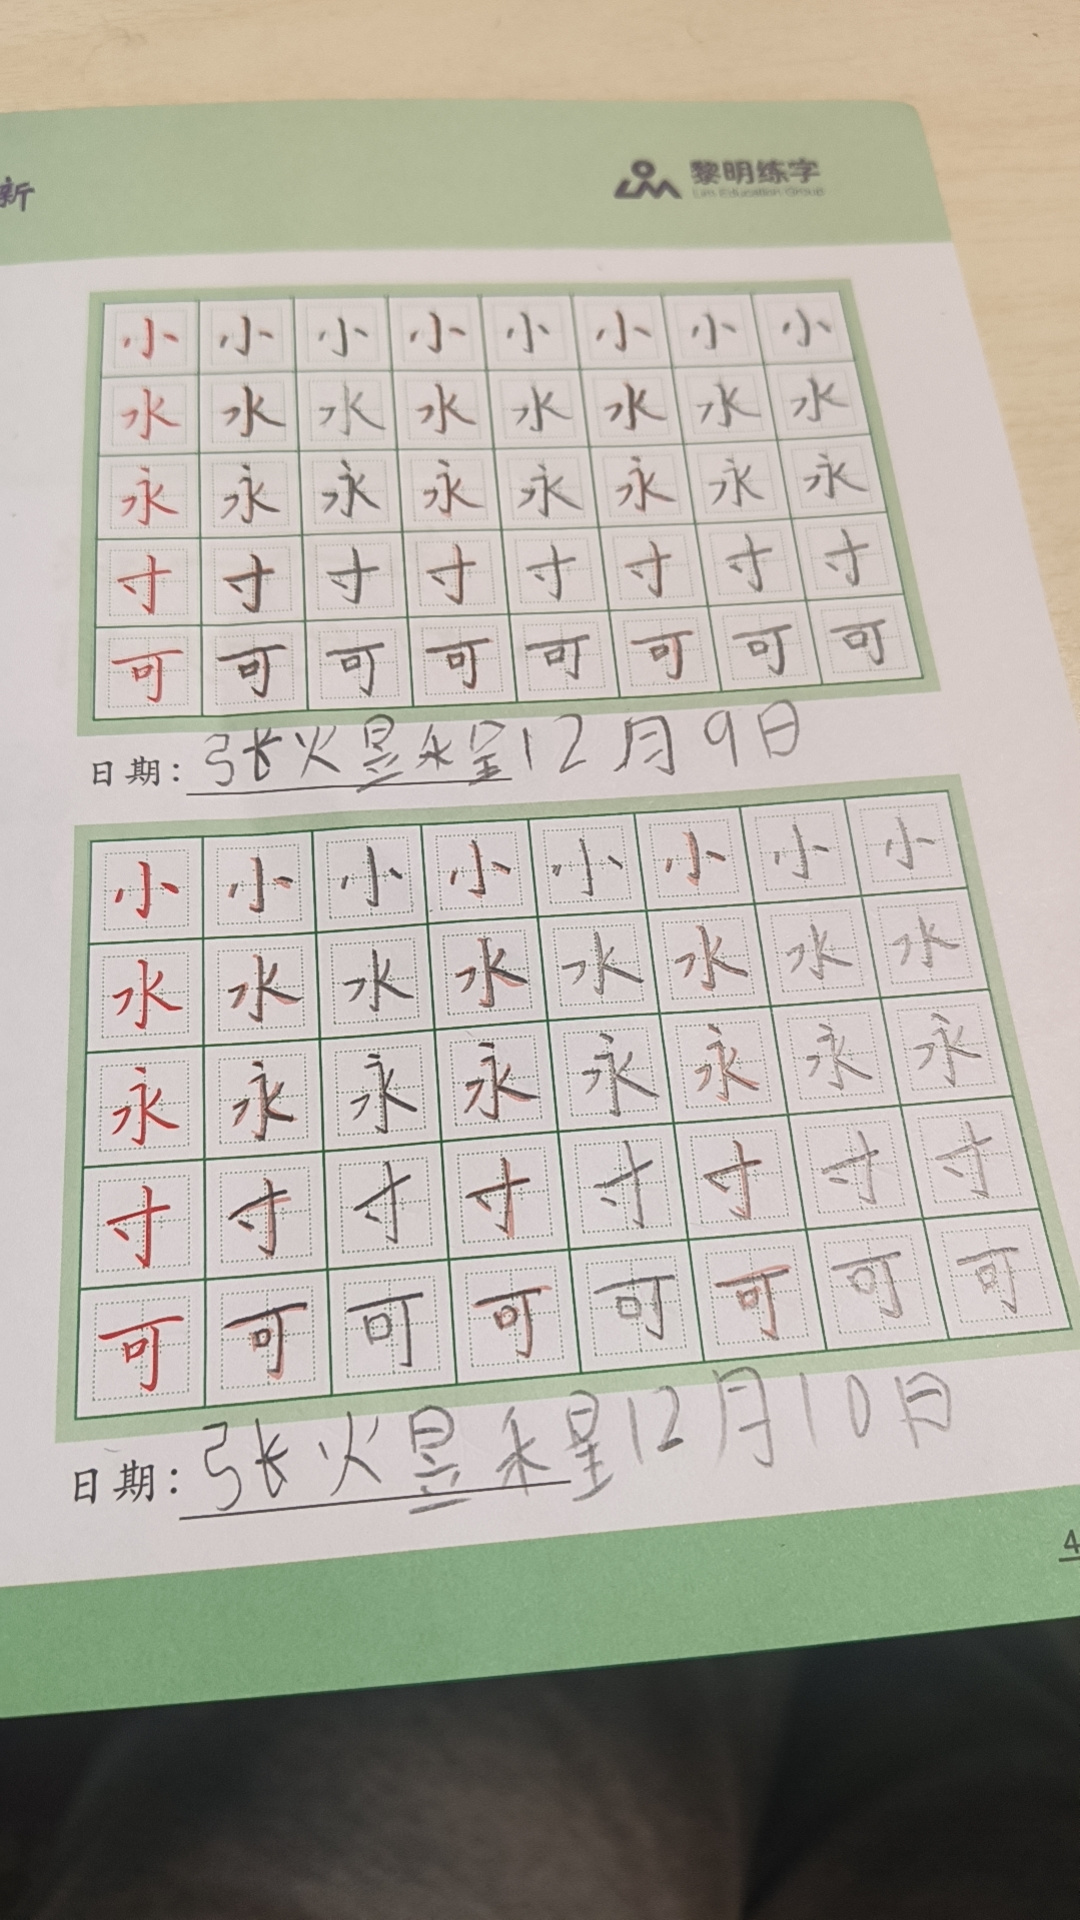 新
黎明练字
Lim Education Group
小 小 小 小 小 小 小 小
水 水 水 水 水 水 水 水
永 永 永 永 永 永 永 永
寸 寸 寸 寸 寸 寸 寸 寸
可 可 可 可 可 可 可 可
日期: 张煜程12月9日
小 小 小 小 小 小 小 小
水 水 水 水 水 水 水 水
永 永 永 永 永 永 永 永
寸 寸 寸 寸 寸 寸 寸 寸
可 可 可 可 可 可 可 可
日期: 张煜程12月10日
4